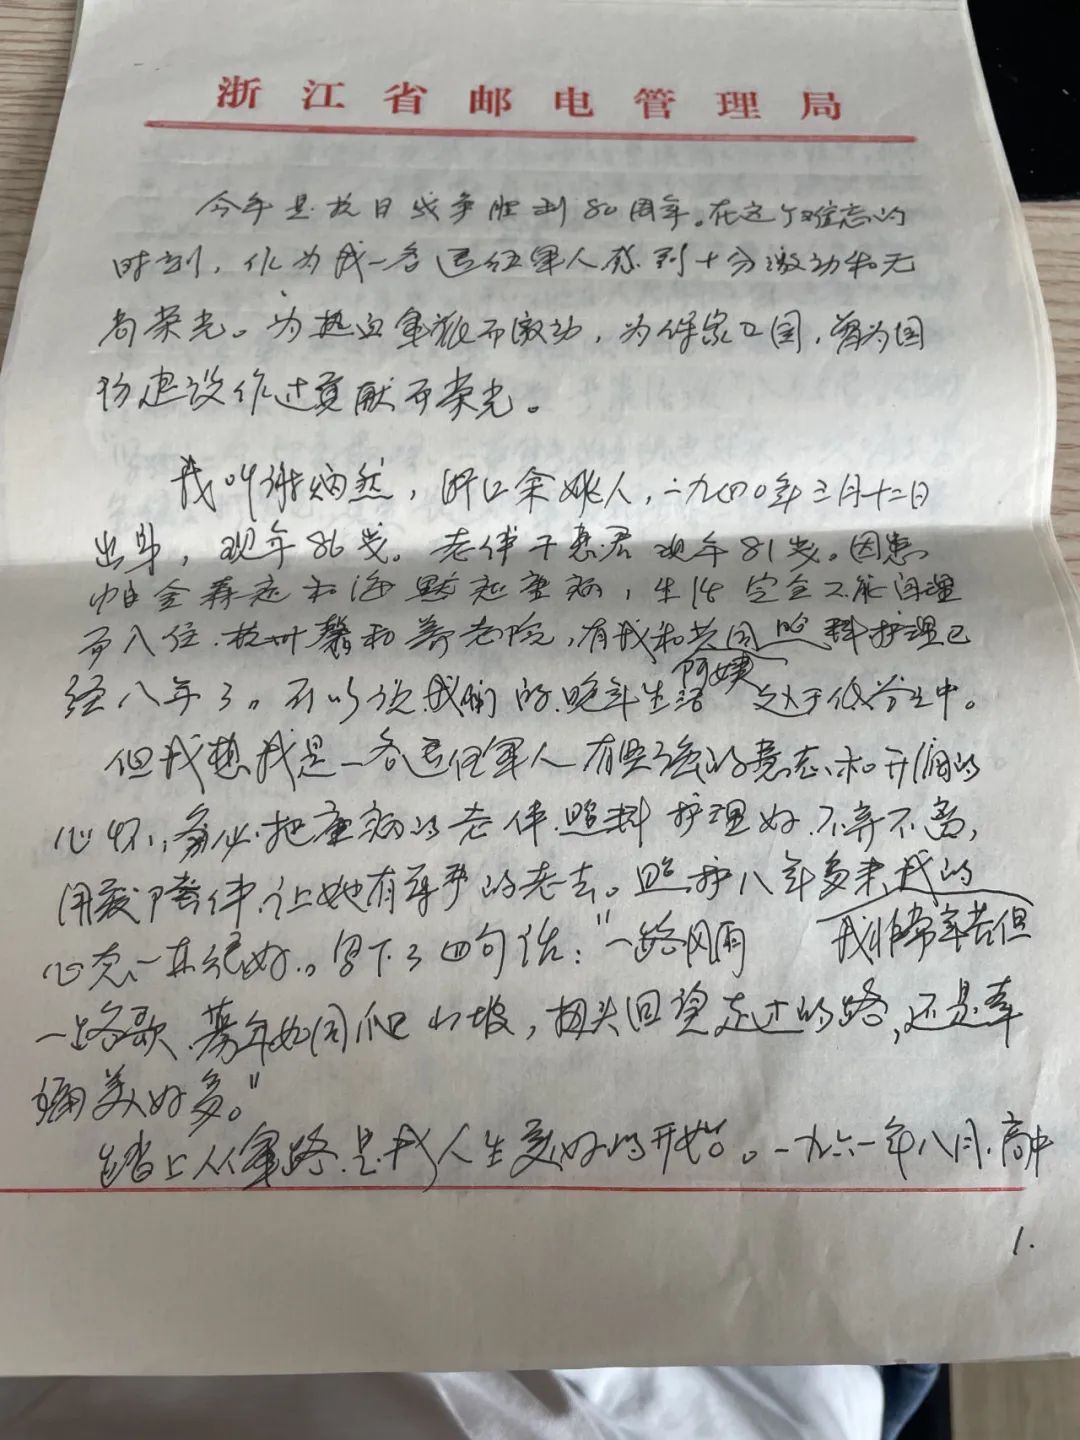 浙江省邮电管理局
今年是抗日战争胜利80周年。在这个难忘的
时刻，作为我一名退伍军人感到十分激动和无
尚荣光。为热血军旅而激动，为保家卫国，曾为国
防建设作过贡献而荣光。
我叫谢炳然，浙江余姚人，一九四〇年三月十二日
出身，现年86岁。老伴于惠君现年81岁。因患
帕金森症和海默症重病，生活完全不能自理
而入住杭州馨和养老院，有我和共同照料护理已
阿姨
经八年了。可以说我们的晚年生活处于低谷之中。
但我想我是一名退伍军人有坚强的意志和开阔的
心怀，务必把重病的老伴照料护理好，不弃不离，
用爱陪伴，让她有尊严的老去。照护八年多来，我的
我非常辛苦但
心态一直很好。写下了四句话："一路风雨
一路歌，暮年如同爬山坡，扭头回望走过的路，还是幸
福美好多。"
踏上从军路是我人生美好的开始。一九六一年八月，高中
1.